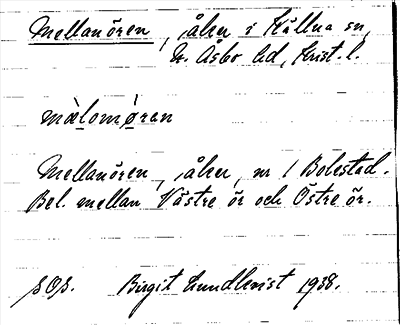 Mellanören, åker i Källna sn,
N. Åsbo hd, Krist. l.
mä̀lomø̀ran
Mellanören, åker, nr 1 Bolestad.
Bel. mellan Västre ör och Östre ör.
Birgit Lundkvist 1938.